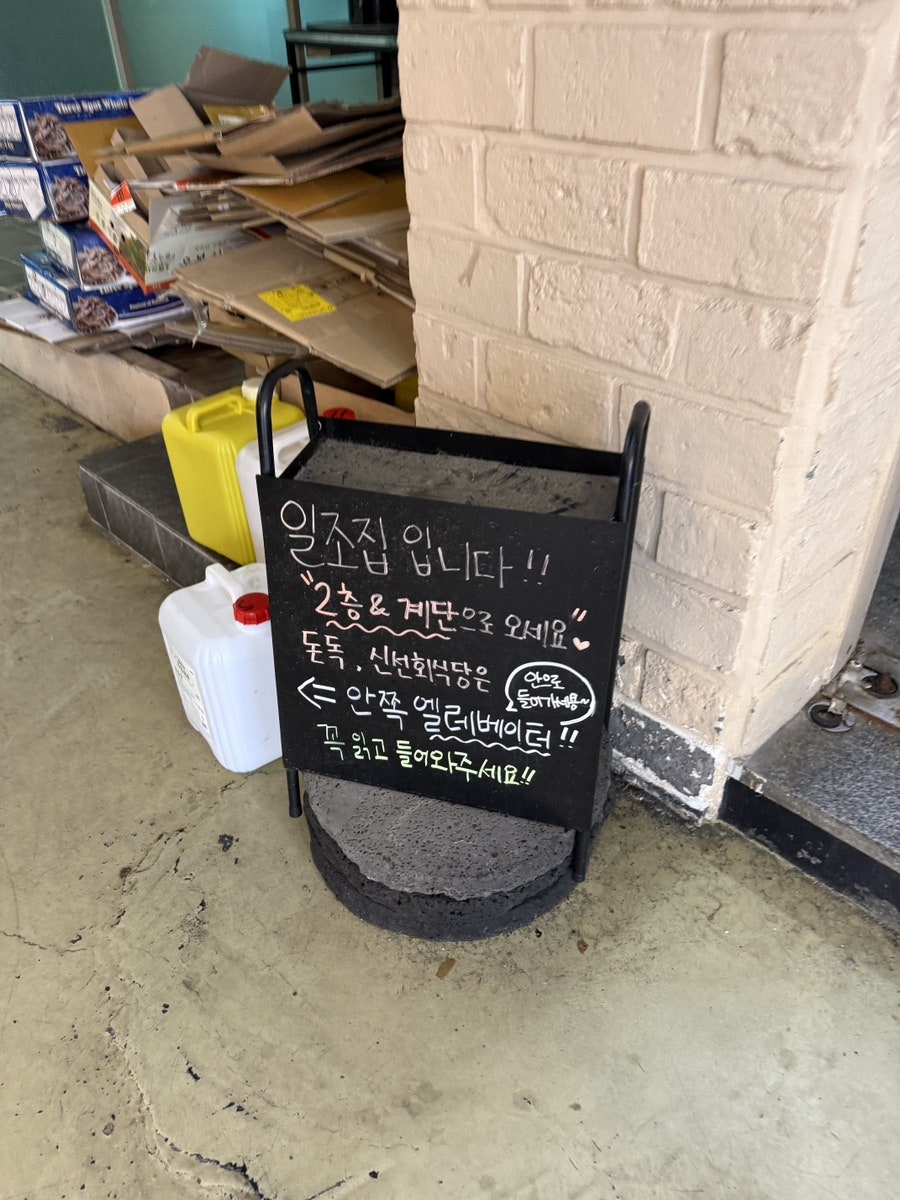 Three Spot White
일조집 입니다!!
"2층 & 계단으로 오세요"
돈독, 신선회식당은
⇐ 안쪽 엘레베이터!!
안으로
들어가세용~
꼭 읽고 들어와주세요!!